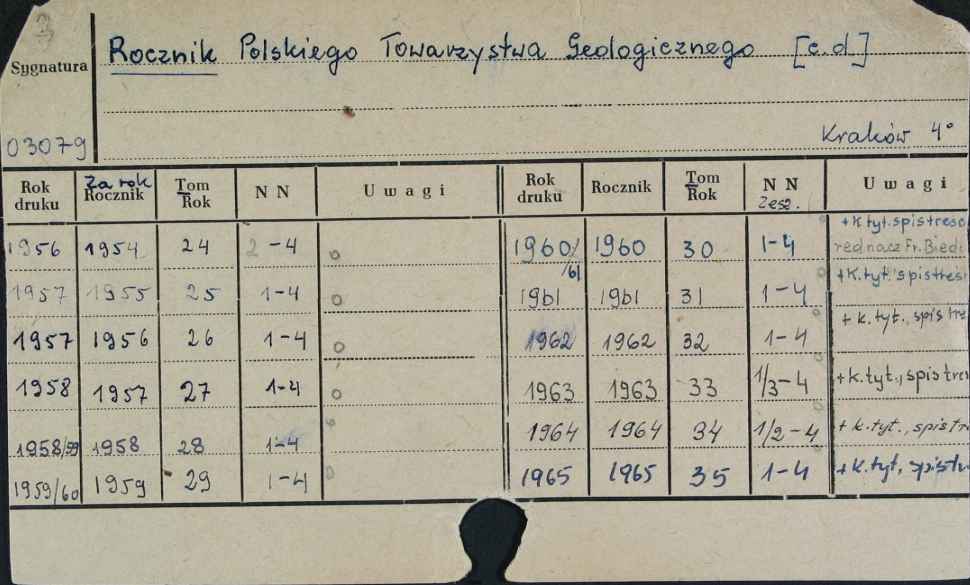 Rocznik Polskiego Towarzystwa Geologicznego [c.d]
Sygnatura
03079
Kraków 4°
Rok druku Za rok Rocznik Tom Rok NN Uwagi Rok druku Rocznik Tom Rok NN Zesz. Uwagi
1956 1954 24 2-4 o 1960/61 1960 30 1-4 +k tyt. spis treści red nacz Fr. Bied
1957 1955 25 1-4 o 1961 1961 31 1-4 +k.tyt. spis treśi
1957 1956 26 1-4 o 1962 1962 32 1-4 + k. tyt., spis tre
1958 1957 27 1-4 o 1963 1963 33 1/3-4 +k.tyt., spis treś
1958/59 1958 28 1-4 1964 1964 34 1/2-4 + k. tyt., spis tr
1959/60 1959 29 1-4 1965 1965 35 1-4 +k.tyt, spis tr